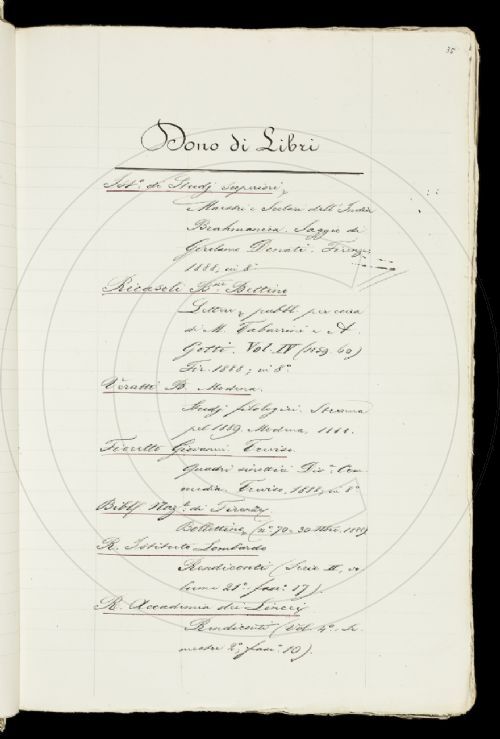 35
Dono di Libri
Ist.º di Studj Superiori,
Maestri e Scolari dell'India
Brahmanica. Saggio di
Girolamo Donati. Firenze
1888, in 8º
Ricasoli B.ne Bettino
Lettere, pubbl. per cura
di M. Tabarrini e A.
Gotti. Vol. IV (1859-60)
Fir. 1888; in 8º
Veratti B. Modena.
Studj filologici. Strenna
pel 1889. Modena, 1888.
Fioretto Giovanni. Treviso.
Quadri sinottici Div.ª Com
media. Treviso, 1888, in 8º
Bibl.ª Naz.le di Firenze
Bollettino, (nº 70. 30 9bre. 1888)
R. Istituto Lombardo
Rendiconti (Serie II, vo
lume 21º fasc. 17).
R. Accademia dei Lincei
Rendiconti (Vol. 4º. Se
mestre 2º, fasc. 10).